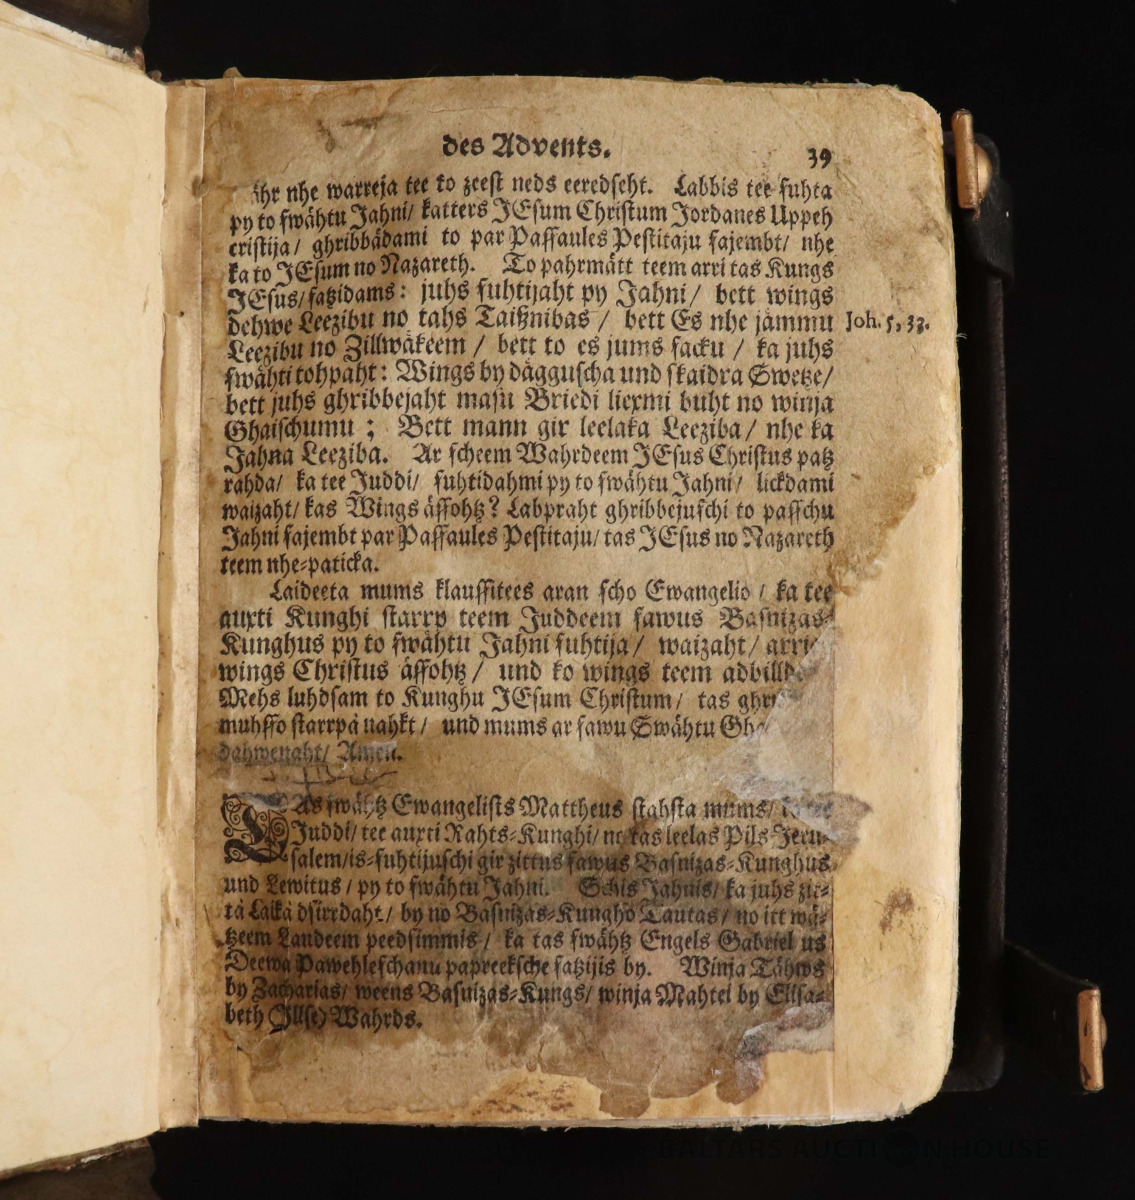 des Advents.
39
ähr nhe warreja tee to zeest neds eeredseht. Labbis tee suhta
py to swähtu Jahni/ katters JEsum Christum Jordanes Uppeh
cristija/ ghribbädami to par Passaules Pestitaju sajembt/ nhe
ka to JEsum no Nazareth. To pahrmätt teem arri tas Kungs
JEsus/ satzidams: juhs suhtijaht py Jahni/ bett wings
dehwe Leezibu no tahs Taißnibas/ bett Es nhe jämmu
Joh. 5, 33.
Leezibu no Zillwäkeem/ bett to es jums sacku/ ka juhs
swähti tohpaht: Wings by dägguscha und skaidra Swetze/
bett juhs ghribbejaht masu Briedi liexmi buht no winja
Ghaischumu; Bett mann gir leelaka Leeziba/ nhe ka
Jahna Leeziba. Ar scheem Wahrdeem JEsus Christus patz
rahda/ ka tee Juddi/ suhtidahmi py to swähtu Jahni/ lickdami
waizaht/ kas Wings ässohtz? Labpraht ghribbejuschi to passchu
Jahni sajembt par Passaules Pestitaju/ tas JEsus no Nazareth
teem nhe-paticka.
Laideeta mums klaussitees aran scho Ewangelio/ ka tee
auxti Kunghi starrp teem Juddeem sawus Basnizas-
Kunghus py to swähtu Jahni suhtija/ waizaht/ arri
wings Christus ässohtz/ und ko wings teem
Mehs luhdsam to Kunghu JEsum Christum/ tas
muhsso starrpä nahkt/ und mums ar sawu Swähtu
dahwenaht/ Amen.
TAs swähtz Ewangelists Mattheus stahsta mums/ ka tee
Juddi/ tee auxti Rahts-Kunghi/ no tas leelas Pils Jeru-
salem/ is-suhtijuschi gir zittus sawus Basnizas-Kunghus
und Lewitus/ py to swähtu Jahni. Schis Jahnis/ ka juhs zit-
tä Laikä dsirrdaht/ by no Basnizas-Kungho Tautas/ no itt wä-
tzeem Laudeem peedsimmis/ ka tas swähtz Engels Gabriel us
Deewa Pawehleschanu papreeksche satzijis by. Winja Tähws
by Zacharias/ weens Basnizas-Kungs/ winja Mahtei by Ellsa-
beth (Illse) Wahrds.